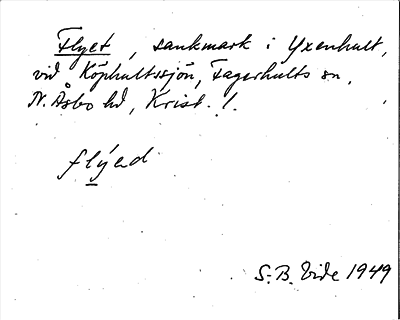 Flyet, sankmark i Yxenhult,
vid Köphultssjön, Fagerhults sn,
N. Åsbo hd, Krist. l.
flýed
S.B. Vide 1949